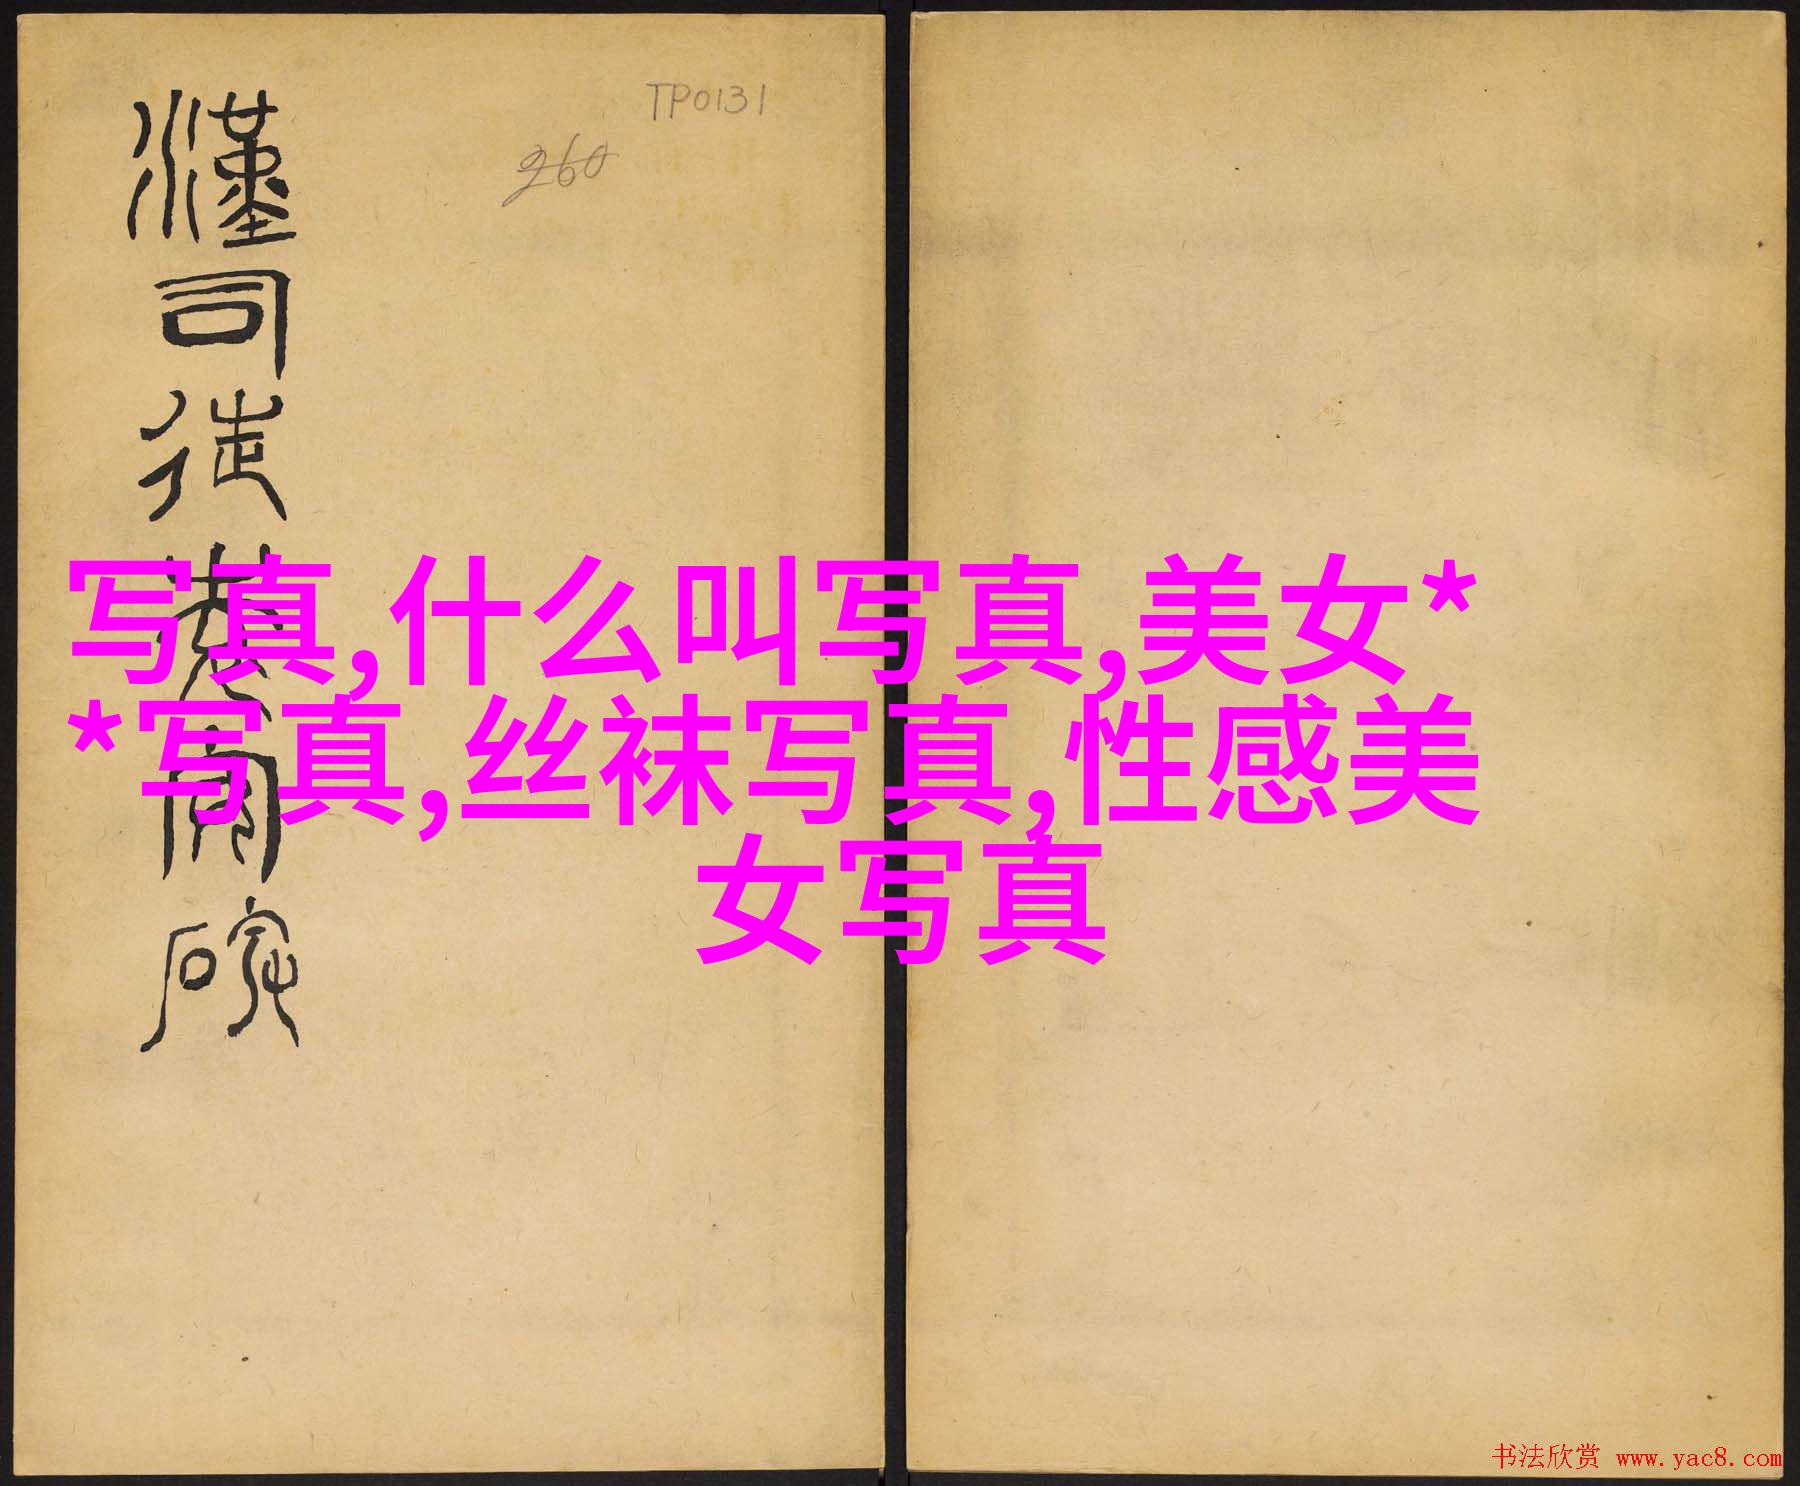 TP0131
260
漢司徒袁安碑
写真,什么叫写真,美女*
*写真,丝袜写真,性感美
女写真
书法欣赏 www.yac8.com